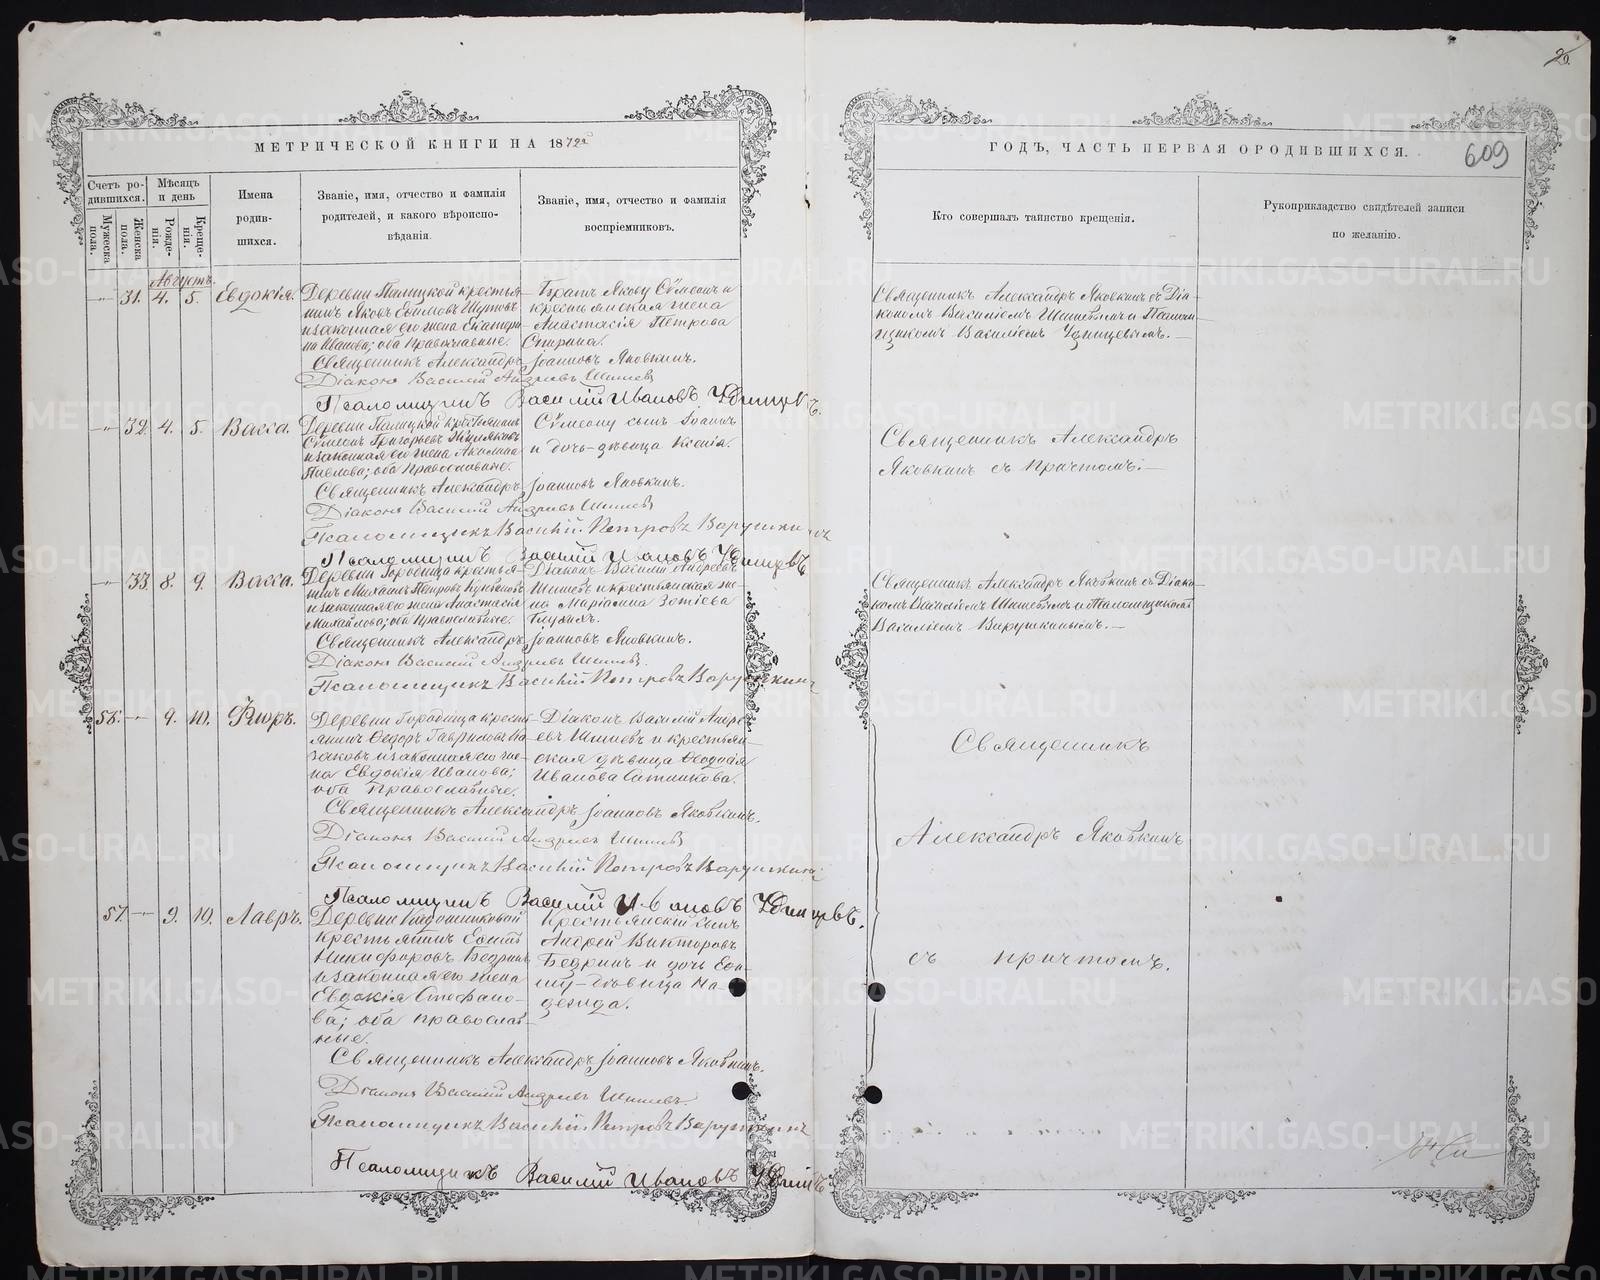 26.
МЕТРИЧЕСКОЙ КНИГИ НА 1872й
ГОДЪ, ЧАСТЬ ПЕРВАЯ О РОДИВШИХСЯ.
609
Счетъ ро-
дившихся.
Мужеска
пола.
Женска
пола.
Мѣсяцъ
и день
Рожде-
нія.
Креще-
нія.
Имена
родив-
шихся.
Званіе, имя, отчество и фамилія
родителей, и какого вѣроиспо-
вѣданія.
Званіе, имя, отчество и фамилія
воспріемниковъ.
Кто совершалъ таинство крещенія.
Рукоприкладство свидѣтелей записи
по желанію.
Августъ.
31. 4. 5. Евдокія.
Деревни крестья-
нинъ Яковъ Ефимовъ
и законная его жена Екатери-
на Иванова; оба Православные.
Братъ Якову Сѵмеонъ и
крестьянская жена
Анастасія Петрова
Спирина.
Священникъ Александръ Яковкинъ съ Діа-
кономъ Василіемъ Шишевымъ и Псалом-
щикомъ Василіемъ Удинцевымъ.
Священникъ Александръ Іоанновъ Яковкинъ.
Діаконъ Василій Андреевъ Шишевъ
Псаломщикъ Василій Ивановъ Удинцевъ.
32. 4. 5. Васса.
Деревни крестьянинъ
Сѵмеонъ Григорьевъ
и законная его жена Акилина
Павлова; оба Православные.
Сѵмеону сынъ Іоаннъ
и дочь-дѣвица Ксенія.
Священникъ Александръ
Яковкинъ съ причтомъ.
Священникъ Александръ Іоанновъ Яковкинъ.
Діаконъ Василій Андреевъ Шишевъ
Псаломщикъ Василій Петровъ Варушкинъ
Псаломщикъ Василій Ивановъ Удинцевъ
33. 8. 9. Васса.
Деревни Городища крестья-
нинъ Михаилъ Петровъ
и законная его жена Анастасія
Михайлова; оба Православные.
Діаконъ Василій Андреевъ
Шишевъ и крестьянская же-
на Маріамна Зотіева
Глухихъ.
Священникъ Александръ Яковкинъ съ Діако-
комъ Василіемъ Шишевымъ и Псаломщикомъ
Василіемъ Варушкинымъ.
Священникъ Александръ Іоанновъ Яковкинъ.
Діаконъ Василій Андреевъ Шишевъ.
Псаломщикъ Василій Петровъ Варушкинъ
9. 10. Флоръ.
Деревни Городища кресть-
янинъ Ѳедоръ Гавриловъ Ка-
заковъ и законная его же-
на Евдокія Иванова;
оба Православные.
Діаконъ Василій Андре-
евъ Шишевъ и крестьян-
ская дѣвица Ѳеодосія
Иванова Сатникова.
Священникъ
Александръ Яковкинъ
съ причтомъ.
Священникъ Александръ Іоанновъ Яковкинъ.
Діаконъ Василій Андреевъ Шишевъ
Псаломщикъ Василій Петровъ Варушкинъ
Псаломщикъ Василій Ивановъ Удинцевъ.
57. 9. 10. Лавръ.
Деревни
крестьянинъ
Никифоровъ Бедринъ
и законная его жена
Евдокія Стефано-
ва; оба православ-
ные.
Крестьянскій сынъ
Андрей Викторовъ
Бедринъ и дочь
дѣвица На-
дежда.
Священникъ Александръ Іоанновъ Яковкинъ.
Діаконъ Василій Андреевъ Шишевъ.
Псаломщикъ Василій Петровъ Варушкинъ
Псаломщикъ Василій Ивановъ
METRIKI.GASO-URAL.RU